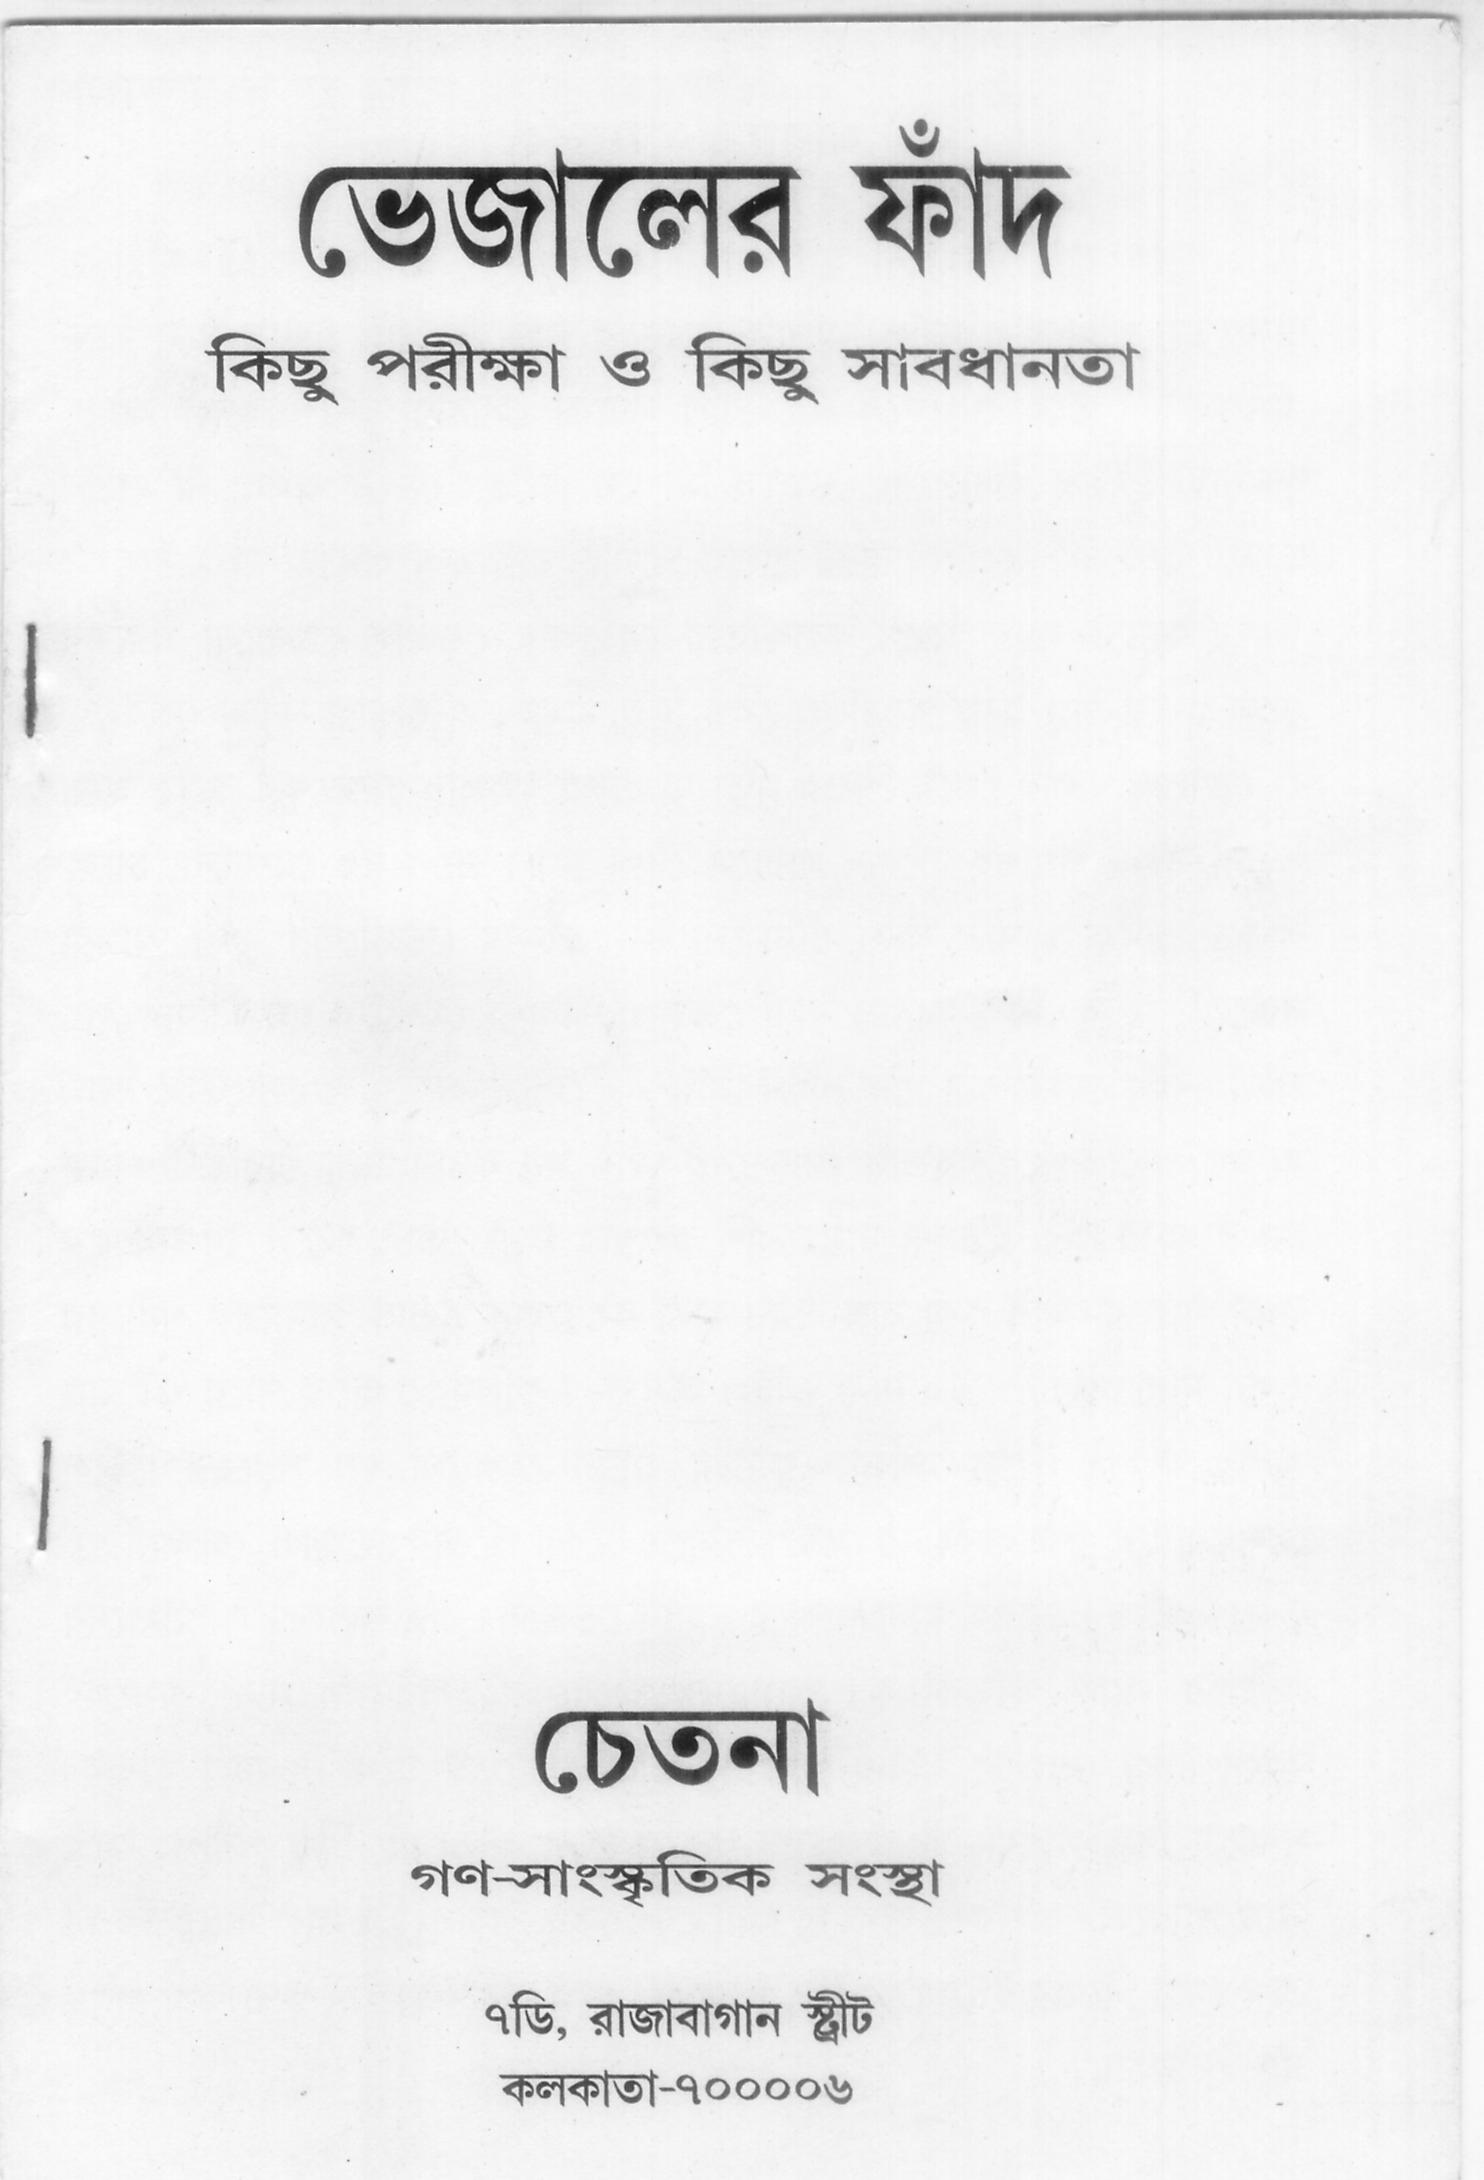 ভেজালের ফাঁদ
কিছু পরীক্ষা ও কিছু সাবধানতা
চেতনা
গণ-সাংস্কৃতিক সংস্থা
৭ডি, রাজাবাগান স্ট্রীট
কলকাতা-৭০০০০৬